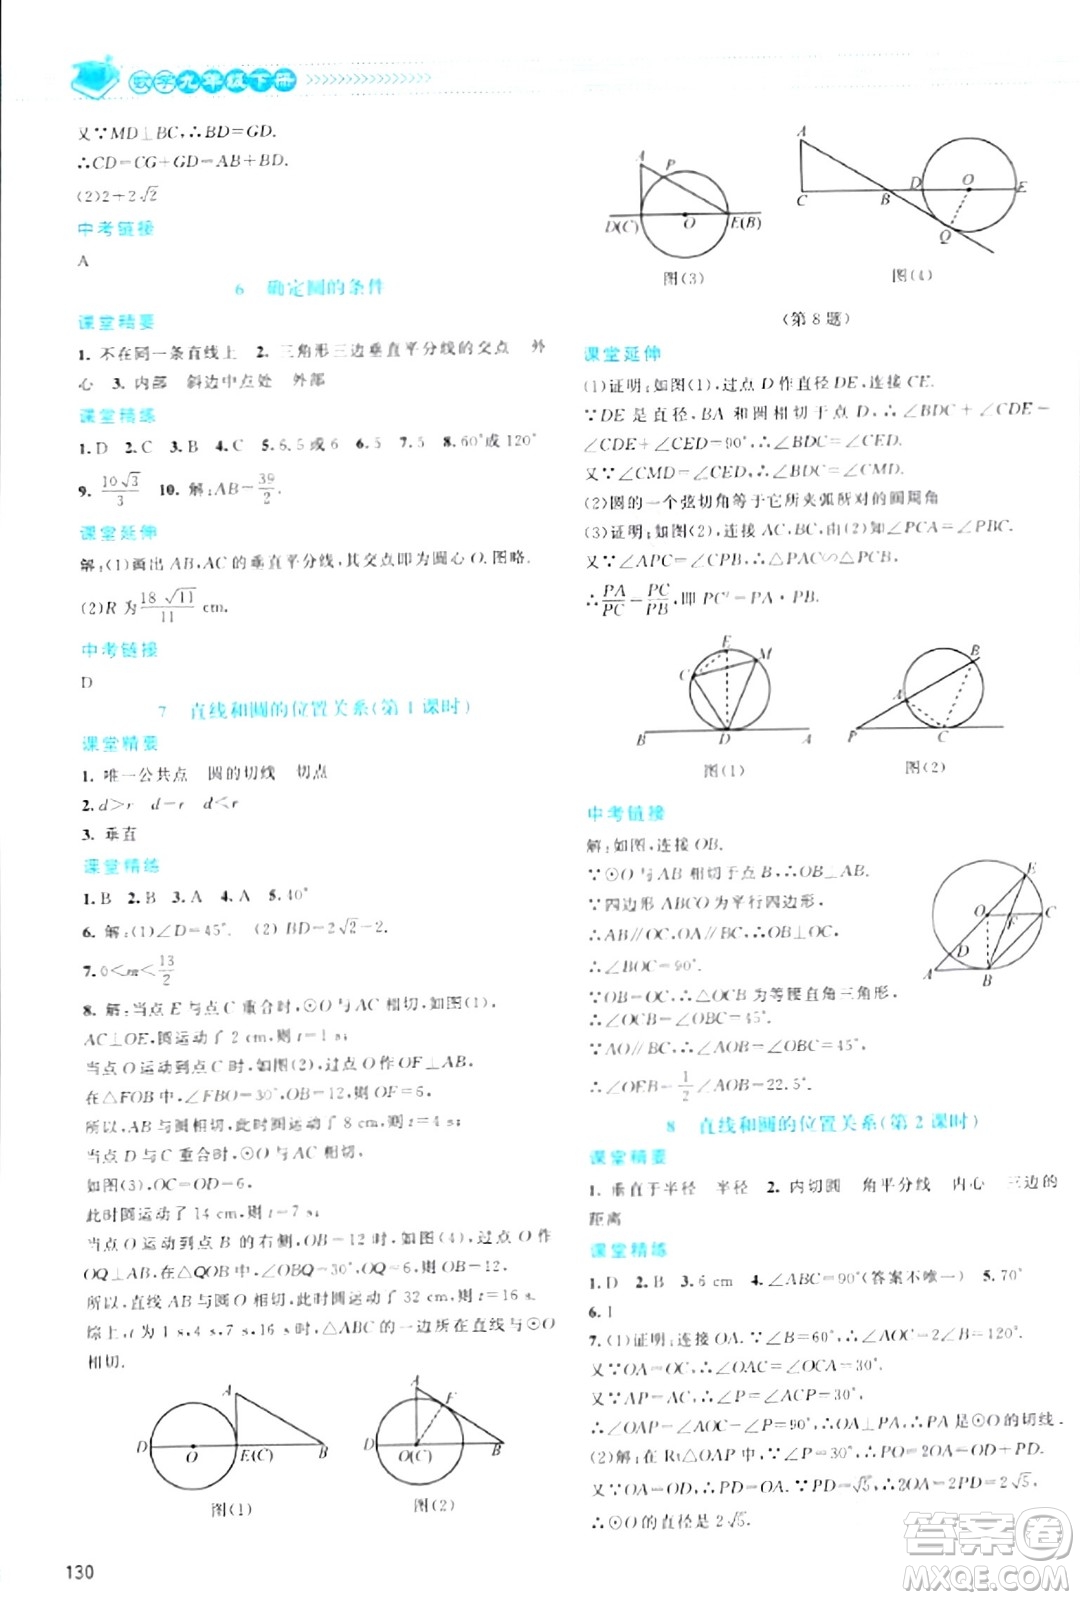 数学九年级下册
又∵MD⊥BC,∴BD=GD.
∴CD=CG+GD=AB+BD.
(2)2+2√2
中考链接
A
6 确定圆的条件
课堂精要
1. 不在同一条直线上 2. 三角形三边垂直平分线的交点 外
心 3. 内部 斜边中点处 外部
课堂精练
1. D 2. C 3. B 4. C 5. 6.5或6 6. 5 7. 5 8. 60°或120°
9. 10√3/3 10. 解:AB=39/2.
课堂延伸
解:(1)画出AB,AC的垂直平分线,其交点即为圆心O.图略.
(2)R为18√11/11 cm.
中考链接
D
7 直线和圆的位置关系(第1课时)
课堂精要
1. 唯一公共点 圆的切线 切点
2. d>r d=r d<r
3. 垂直
课堂精练
1. B 2. B 3. A 4. A 5. 40°
6. 解:(1)∠D=45°. (2)BD=2√2-2.
7. 0<m<13/2
8. 解:当点E与点C重合时,⊙O与AC相切,如图(1),
AC⊥OE,圆运动了2 cm,则t=1 s;
当点O运动到点C时,如图(2),过点O作OF⊥AB,
在△FOB中,∠FBO=30°,OB=12,则OF=6,
所以,AB与圆相切,此时圆运动了8 cm,则t=4 s;
当点D与C重合时,AC与圆O相切,
如图(3),OC=OD=6,
此时圆运动了14 cm,则t=7 s;
当点O运动到点B的右侧,OB=12时,如图(4),过点O作
OQ⊥AB,在△QOB中,∠OBQ=30°,则OQ=6,
所以,直线AB与圆O相切,此时圆运动了32 cm,则t=16 s;
综上,t为1 s,4 s,7 s,16 s时,△ABC的一边所在直线与⊙O
相切.
A D O E(C) B
图(1)
A F D O(C) B
图(2)
A P D(C) O E(B)
图(3)
A C B D O E Q
图(4)
(第8题)
课堂延伸
(1)证明:如图(1),过点D作直径DE,连接CE.
∵DE是直径,BA和圆相切于点D,∴∠BDC+∠CDE=
∠CDE+∠CED=90°,∴∠BDC=∠CED.
又∵∠CMD=∠CED,∴∠CMD=∠BDC.
(2)圆的一个弦切角等于它所夹弧所对的圆周角
(3)证明:如图(2),连接AC,BC,由(2)知∠PCA=∠PBC.
又∵∠APC=∠CPB,∴△PAC∽△PCB.
∴PA/PC=PC/PB,即PC²=PA·PB.
E M C B D A
图(1)
B A P C
图(2)
中考链接
解:如图,连接OB.
∵⊙O与AB相切于点B,∴OB⊥AB.
∵四边形ABCO为平行四边形,
∴AB∥OC,OA∥BC,∴OB⊥OC,
∴∠BOC=90°.
∵OB=OC,∴△OCB为等腰直角三角形,
∴∠OCB=∠OBC=45°.
∵AO∥BC,∴∠AOB=∠OBC=45°,
∴∠OEB=1/2∠AOB=22.5°.
E O C F D A B
8 直线和圆的位置关系(第2课时)
课堂精要
1. 垂直于半径 半径 2. 内切圆 角平分线 内心 三边的
距离
课堂精练
1. D 2. B 3. 6 cm 4. ∠ABC=90°(答案不唯一) 5. 70°
6. 1
7. (1)证明:连接OA.∵∠B=60°,∴∠AOC=2∠B=120°.
又∵OA=OC,∴∠OAC=∠OCA=30°.
又∵AP=AC,∴∠P=∠ACP=30°,
∴∠OAP=∠AOC-∠P=90°,∴OA⊥PA,∴PA是⊙O的切线.
(2)解:在Rt△OAP中,∵∠P=30°,∴PO=2OA=OD+PD.
又∵OA=OD,∴PD=OA.∵PD=√5,∴2OA=2PD=2√5,
∴⊙O的直径是2√5.
130
答案卷
MXQE.COM